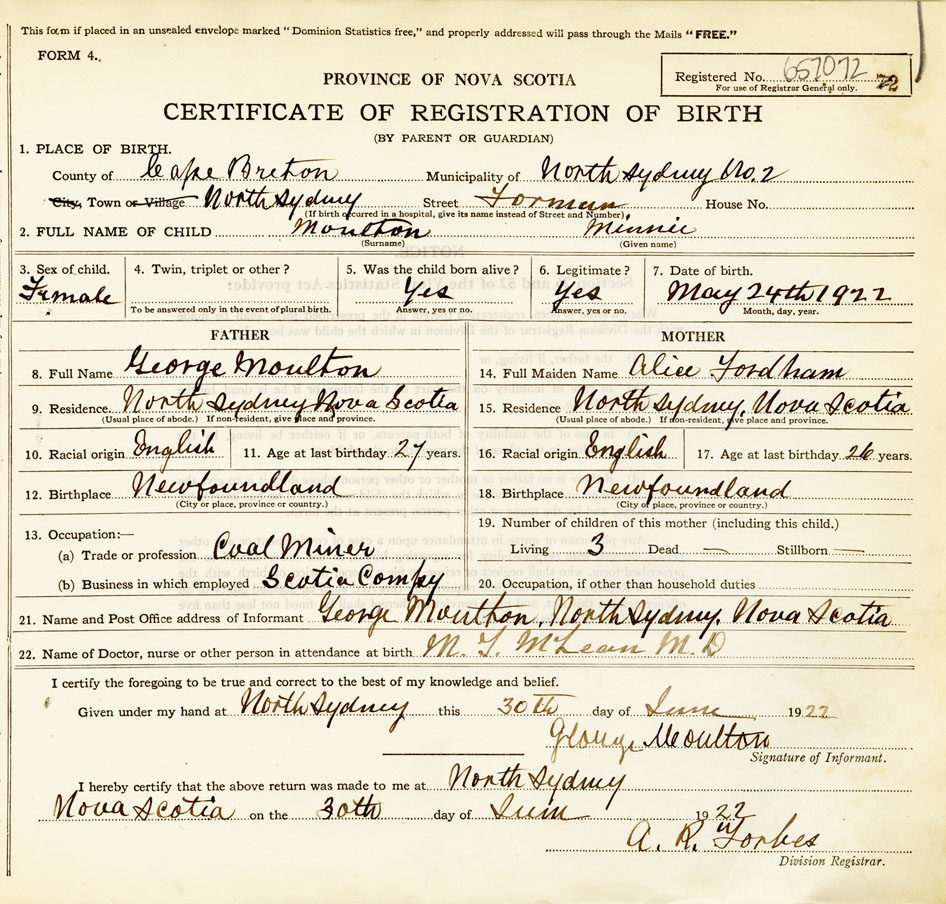 This form if placed in an unsealed envelope marked "Dominion Statistics free," and properly addressed will pass through the Mails "FREE."
FORM 4.
PROVINCE OF NOVA SCOTIA
Registered No. 657072 72
For use of Registrar General only.
CERTIFICATE OF REGISTRATION OF BIRTH
(BY PARENT OR GUARDIAN)
1. PLACE OF BIRTH.
County of Cape Breton Municipality of North Sydney No. 2
City, Town or Village North Sydney Street Forman House No.
(If birth occurred in a hospital, give its name instead of Street and Number)
2. FULL NAME OF CHILD Moulton Minnie
(Surname) (Given name)
3. Sex of child. 4. Twin, triplet or other? 5. Was the child born alive? 6. Legitimate? 7. Date of birth.
Female Yes Yes May 24th 1922
To be answered only in the event of plural birth. Answer, yes or no. Answer, yes or no. Month, day, year.
FATHER MOTHER
8. Full Name George Moulton 14. Full Maiden Name Alice Fordham
9. Residence North Sydney Nova Scotia 15. Residence North Sydney, Nova Scotia
(Usual place of abode.) If non-resident, give place and province. (Usual place of abode.) If non-resident, give place and province.
10. Racial origin English 11. Age at last birthday 27 years. 16. Racial origin English 17. Age at last birthday 26 years.
12. Birthplace Newfoundland 18. Birthplace Newfoundland
(City or place, province or country.) (City of place, province or country.)
19. Number of children of this mother (including this child.)
13. Occupation:—
(a) Trade or profession Coal Miner Living 3 Dead — Stillborn —
(b) Business in which employed Scotia Compy 20. Occupation, if other than household duties
21. Name and Post Office address of Informant George Moulton, North Sydney, Nova Scotia
22. Name of Doctor, nurse or other person in attendance at birth M. T. McLean M.D
I certify the foregoing to be true and correct to the best of my knowledge and belief.
Given under my hand at North Sydney this 30th day of June 1922
George Moulton
Signature of Informant.
I hereby certify that the above return was made to me at North Sydney
Nova Scotia on the 30th day of June 1922
A. R. Forbes
Division Registrar.